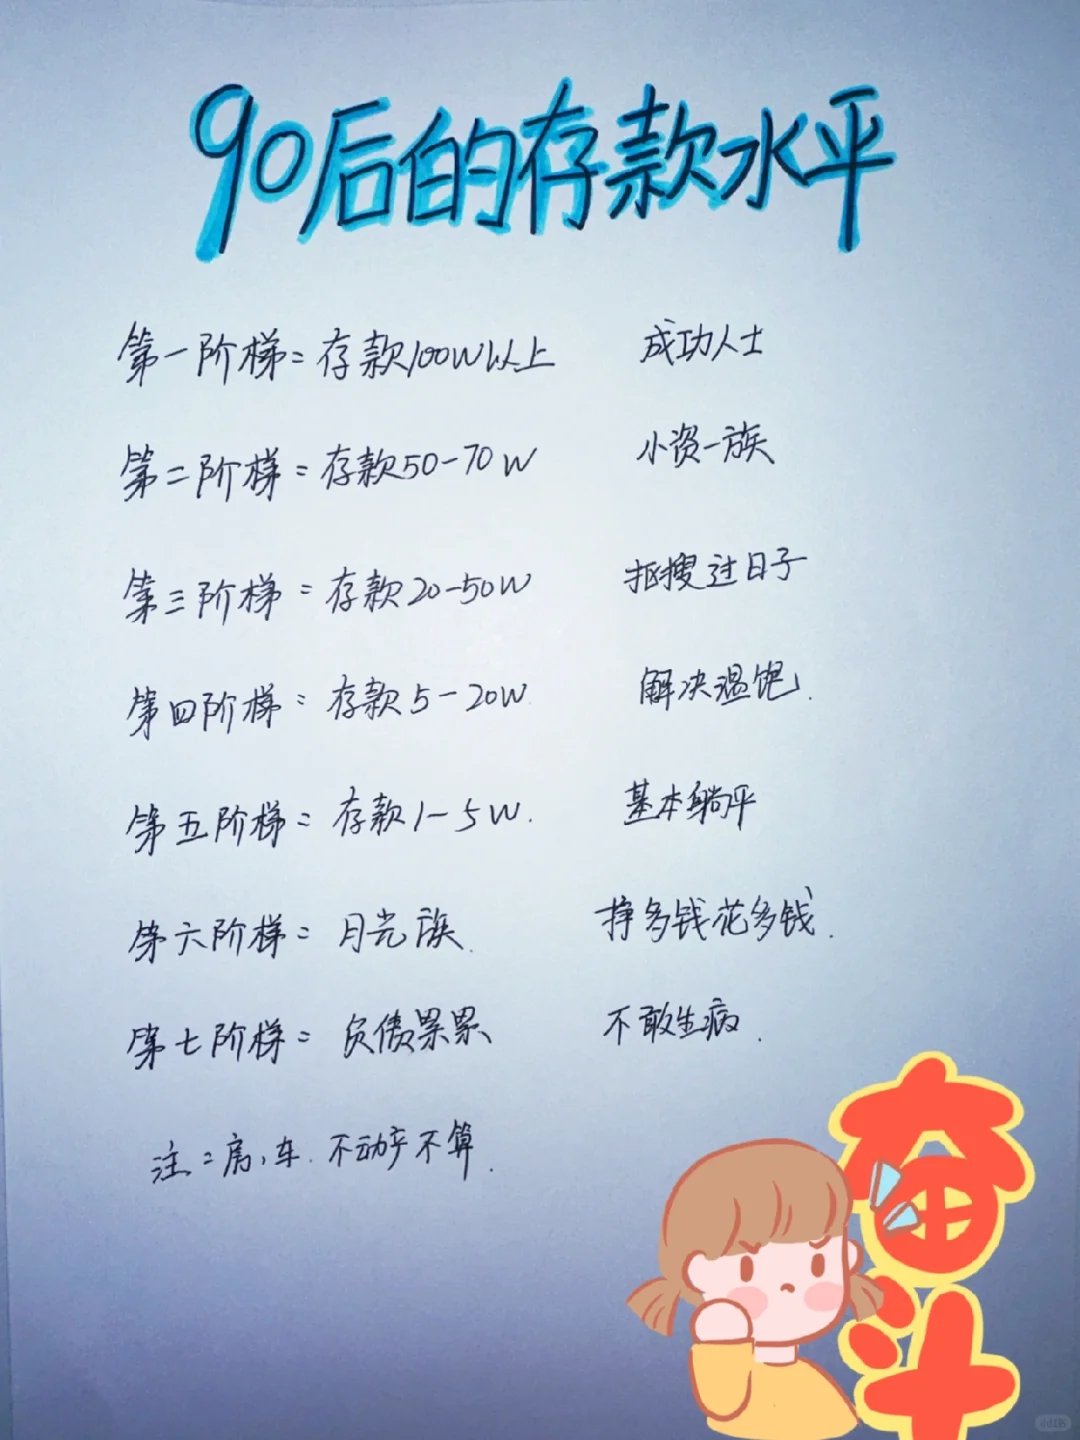 90后的存款水平
第一阶梯：存款100W以上 成功人士
第二阶梯：存款50-70W 小资一族
第三阶梯：存款20-50W 抠搜过日子
第四阶梯：存款5-20W 解决温饱.
第五阶梯：存款1-5W. 基本躺平
第六阶梯：月光族. 挣多钱花多钱.
第七阶梯：负债累累 不敢生病.
注：房、车.不动产不算.
奋斗